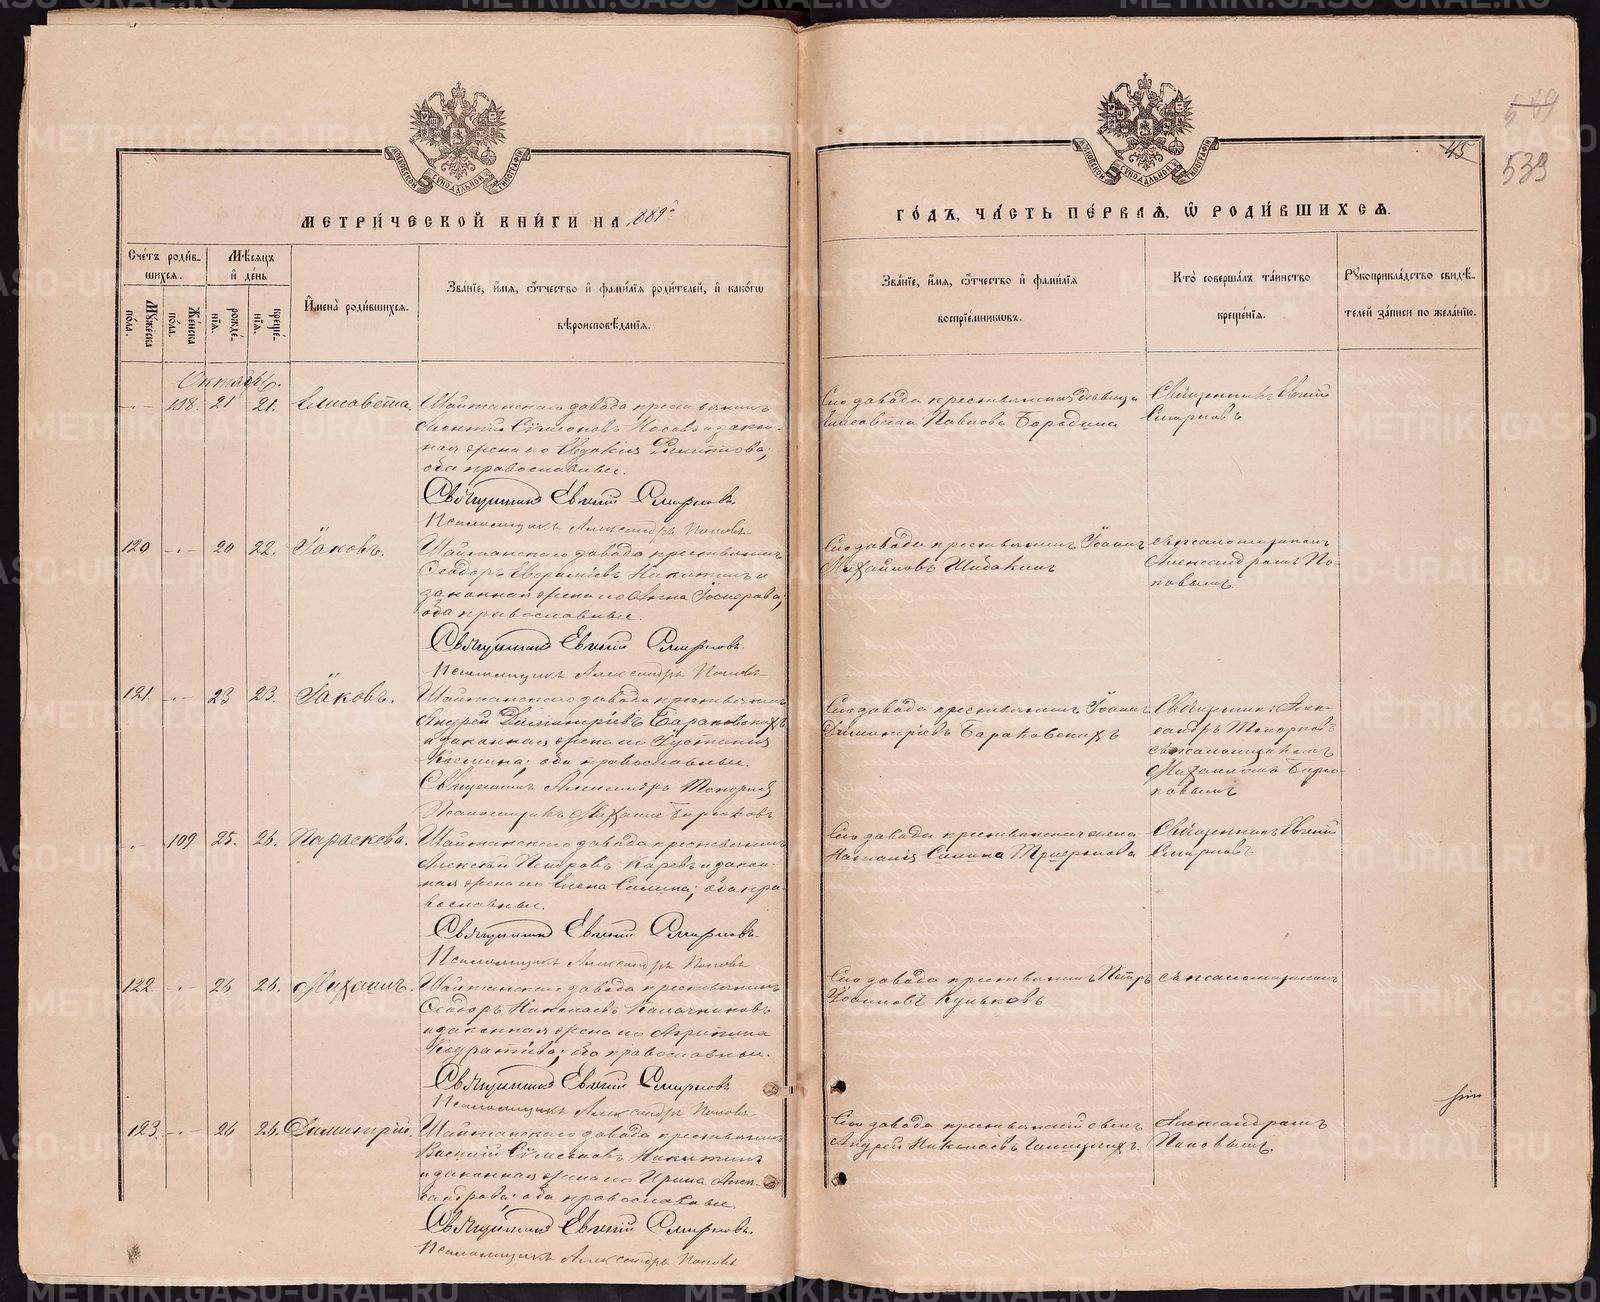 549
45
539
МЕТРИ́ЧЕСКОЙ КНИ́ГИ НА 1889й
ГО́ДЪ, ЧА́СТЬ ПЕ́РВАѦ, Ѡ РОДИ́ВШИХСѦ.
Сче́тъ роди́в-
шихся.
Мѣ́сяцъ
и де́нь
Мꙋжеска по́ла.
Же́нска по́ла.
рожде́-
нїѧ.
креще́-
нїѧ.
И́мена̀ роди́вшихся.
Зва́нїе, и́мѧ, ѻ́тчество и фами́лїѧ роди́телей, и како́гѡ
вѣроисповѣ́данїѧ.
Зва́нїе, и́мѧ, ѻ́тчество и фами́лїѧ
воспрїе́мникѡвъ.
Кто̀ соверша́лъ та́инство
креще́нїѧ.
Рꙋкоприкла́дство свидѣ́-
телей за́писи по жела́нїю.
Октябрь.
108. 21 21. Елисавета.
Шайтанскаго завода крестьянинъ
Леонтій Симеоновъ Носовъ и закон-
ная жена его Евдокія Димитрова;
оба православные.
Священникъ Евгеній Смирновъ.
Псаломщикъ Александръ Поповъ
Сего завода крестьянская дѣвица
Елисавета Павлова Бородина
Священникъ Евгеній
Смирновъ
120 20 22. Іаковъ.
Шайтанскаго завода крестьянинъ
Ѳеодоръ Никитинъ и
законная жена его Анна
оба православные.
Священникъ Евгеній Смирновъ.
Псаломщикъ Александръ Поповъ
Сего завода крестьянинъ Іоаннъ
Михайловъ Шибакинъ
съ псаломщикомъ
Александромъ По-
повымъ
121 23 23. Іаковъ.
Шайтанскаго завода крестьянинъ
Андрей Димитріевъ Бараковскихъ
и законная жена его Іустинія
Космина; оба православные.
Священникъ Александръ Топорковъ
Псаломщикъ Михаилъ Бирюковъ
Сего завода крестьянинъ Іоаннъ
Димитріевъ Бараковскихъ
Священникъ Алек-
сандръ Топорковъ
съ псаломщикомъ
Михаиломъ Бирю-
ковымъ
109 25. 26. Параскева.
Шайтанскаго завода крестьянинъ
Алексѣй Петровъ Каревъ и закон-
ная жена его Елена Силина; оба пра-
вославные.
Священникъ Евгеній Смирновъ.
Псаломщикъ Александръ Поповъ
Сего завода крестьянская жена
Наталія Силина
Священникъ Евгеній
Смирновъ
122 26 26. Михаилъ.
Шайтанскаго завода крестьянинъ
Ѳеодоръ Николаевъ Калачниковъ
и законная жена его Агриппина
оба православные.
Священникъ Евгеній Смирновъ
Псаломщикъ Александръ Поповъ
Сего завода крестьянинъ Петръ
Іоанновъ Кульковъ
съ псаломщикомъ
123 26 26. Димитрій.
Шайтанскаго завода крестьянинъ
Василій Симеоновъ Никитинъ
и законная жена его Ирина Алек-
сандрова; оба православные.
Священникъ Евгеній Смирновъ.
Псаломщикъ Александръ Поповъ
Сего завода крестьянскій сынъ
Андрей Николаевъ Галицкихъ.
Александромъ
Поповымъ.